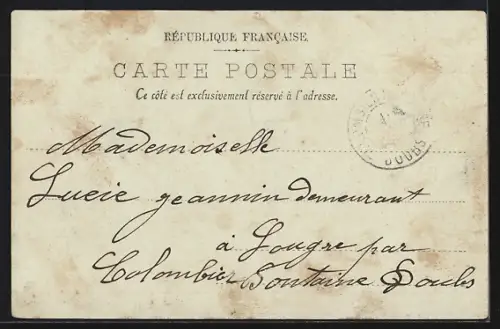 RÉPUBLIQUE FRANÇAISE.
CARTE POSTALE
Ce côté est exclusivement réservé à l'adresse.
DOUBS
Mademoiselle
Lucie Jeannin demeurant
à Lougre par
Colombier Fontaine Doubs